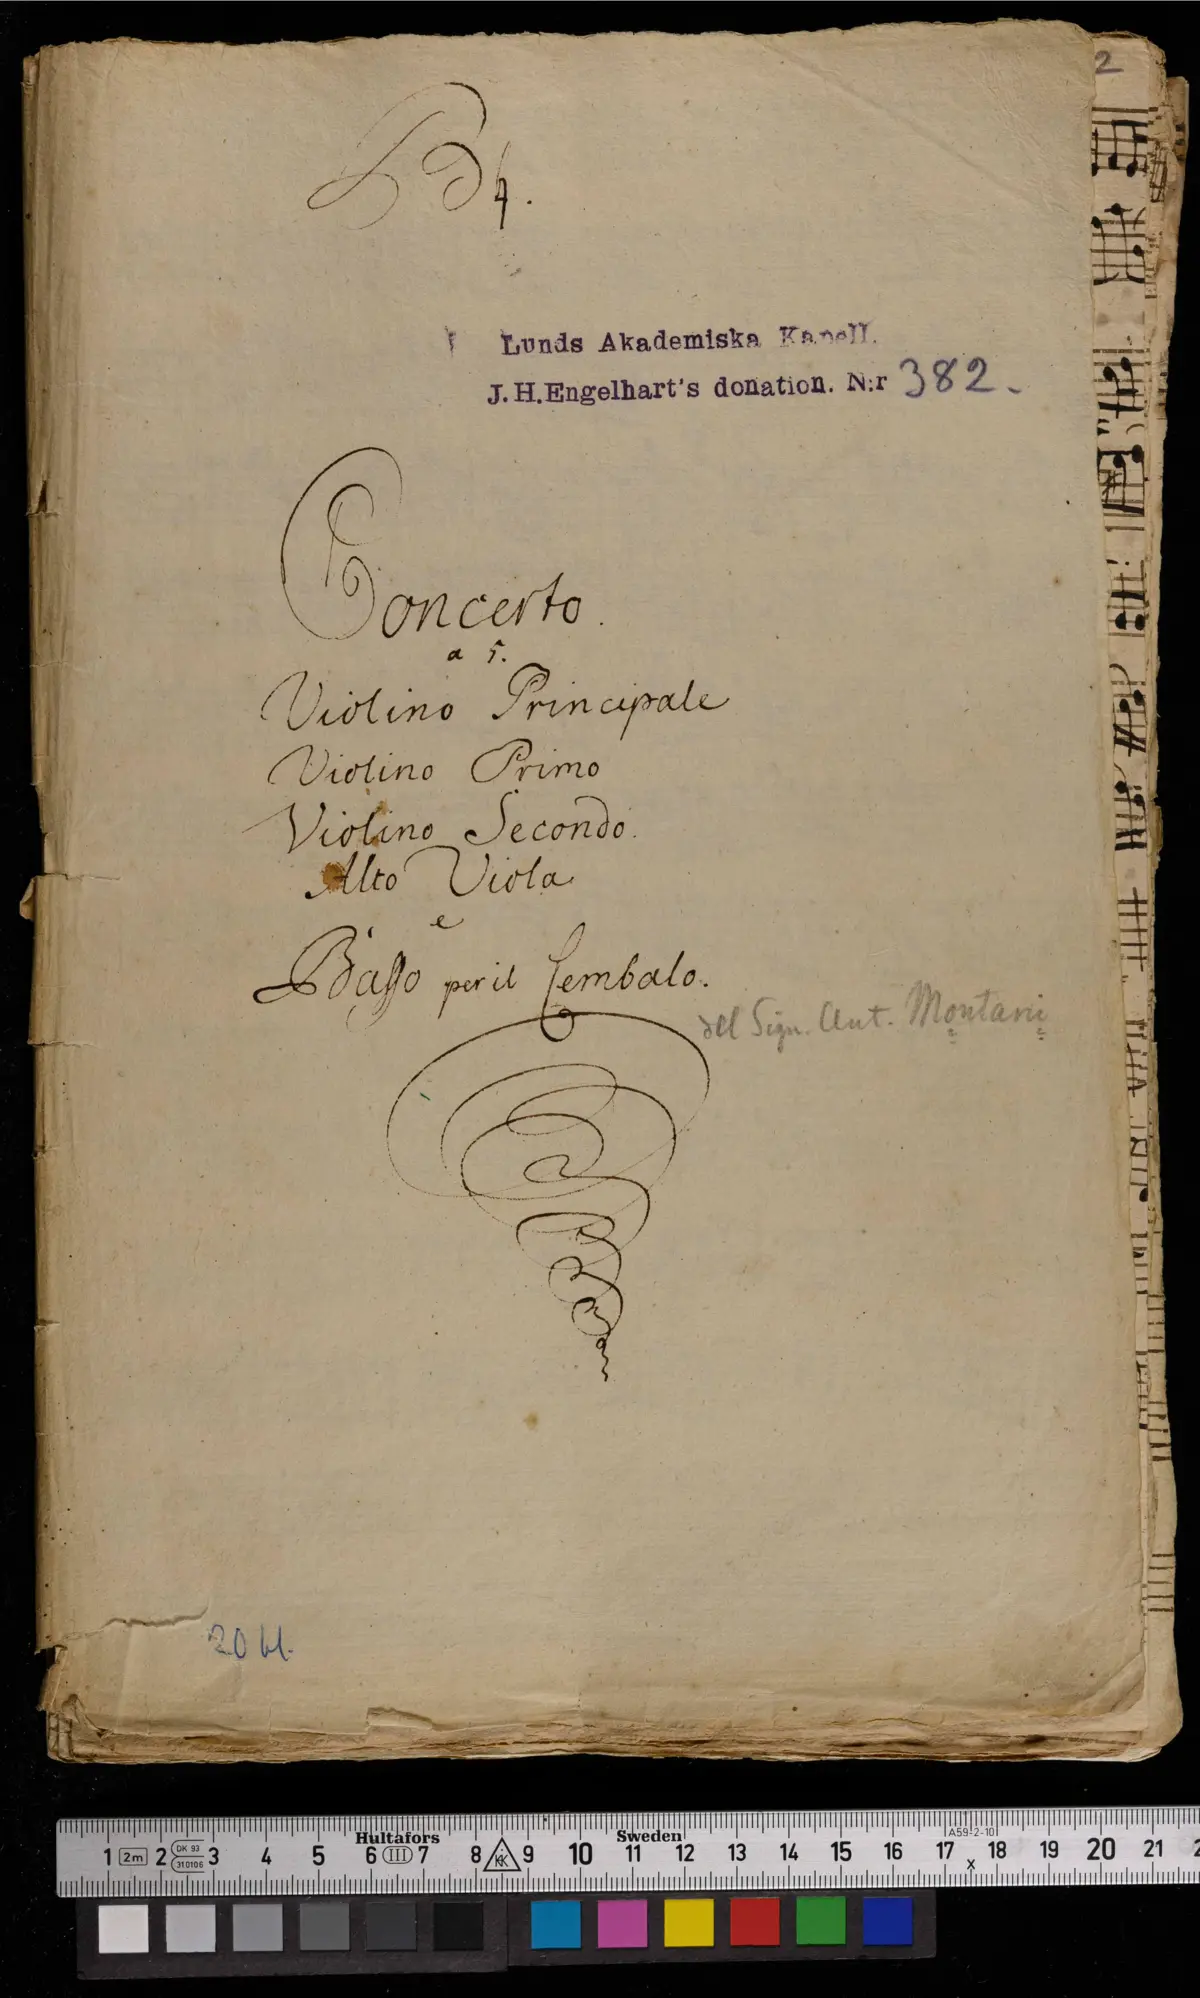 2
Lunds Akademiska Kapell.
J.H.Engelhart's donation. N:r 382.
Concerto.
a 5.
Violino Principale
Violino Primo
Violino Secondo.
Alto Viola
e
Basso per il Cembalo.
del Sign. Ant. Montani
20 bl.
Hultafors Sweden A59-2-10
1 2m 2 DK 93 31.0106 3 4 5 6 III 7 8 KK 9 10 11 12 13 14 15 16 17 x 18 19 20 21 2